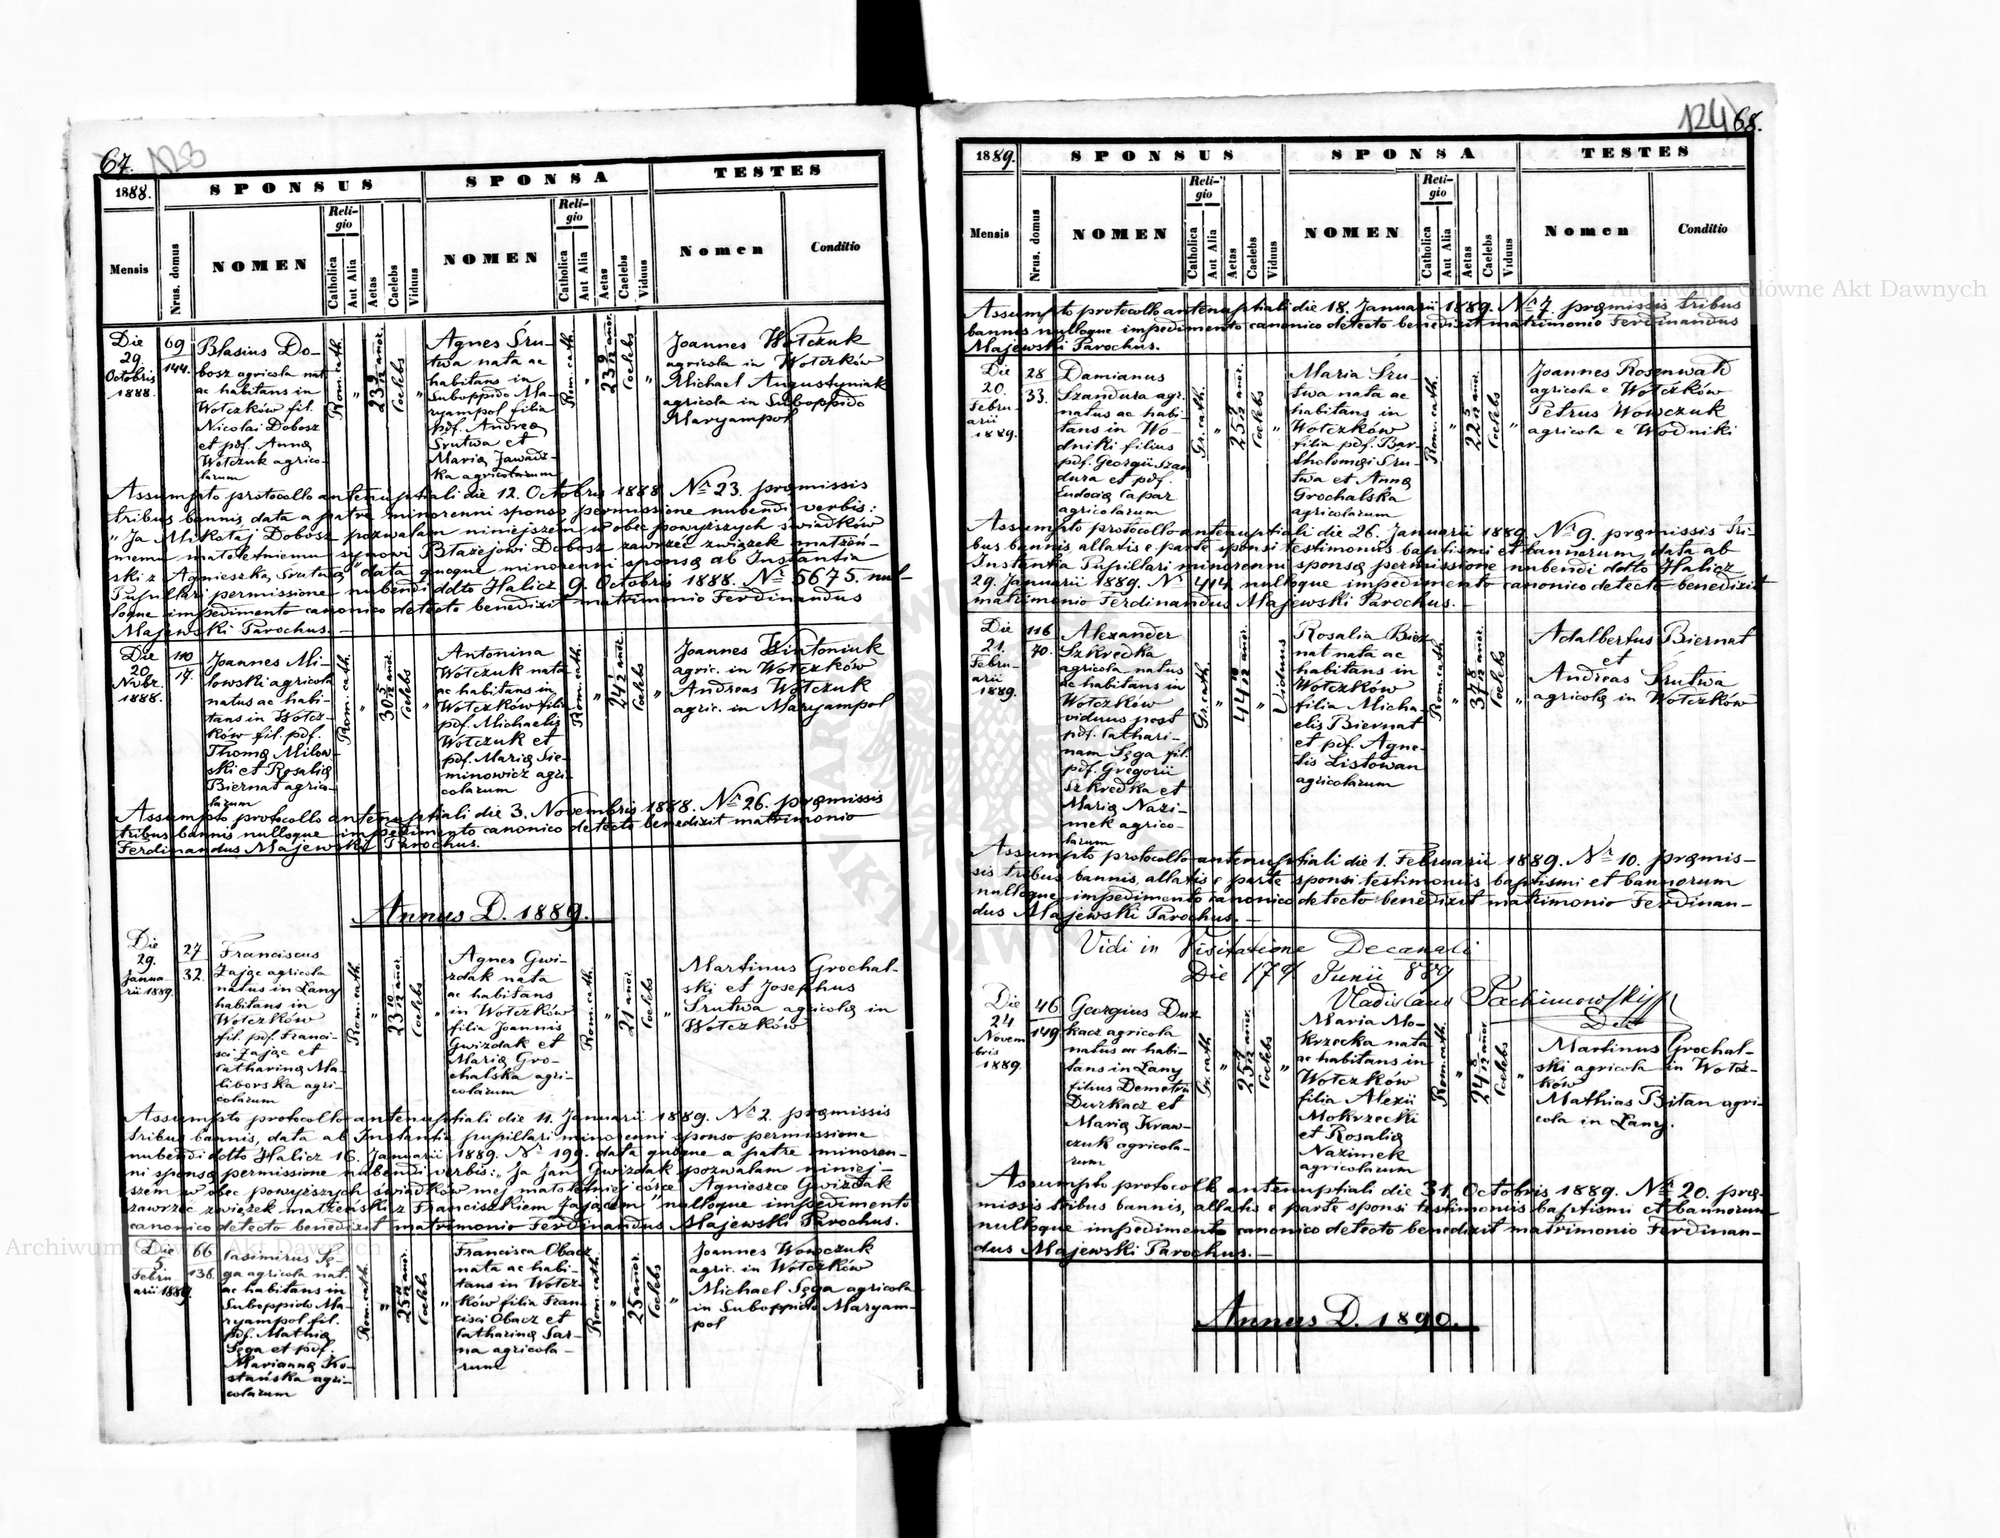 67. 123
1888. SPONSUS SPONSA TESTES
Mensis Nrus. domus NOMEN Religio Catholica Aut Alia Aetas Caelebs Viduus NOMEN Religio Catholica Aut Alia Aetas Caelebs Viduus Nomen Conditio
Die
29.
Octobris
1888.
69
144.
Blasius Do-
bosz agricola nat
ac habitans in
Wołczków fil.
Nicolai Dobosz
et pdf. Annę
Wołczuk agrico-
larum
Rom. cath.
"
23 9/12 anor.
Coelebs
"
Agnes Śru-
twa nata ac
habitans in
Suboppido Ma-
ryampol filia
pdf. Andreę
Srutwa et
Marię Jawadz-
ka agricolarum
Rom. cath.
"
23 9/12 anor.
Coelebs
"
Joannes Wołczuk
agricola in Wołczków
Michael Augustyniak
agricola in Suboppido
Maryampol
Assumpto protocollo antenuptiali die 12. Octobris 1888 Nr 23. pręmissis
tribus bannis, data a patre minorenni sponso permissione nubendi verbis:
"Ja Mikołaj Dobosz pozwalam niniejszem w obec powyższych świadków
memu małoletniemu synowi Błażejowi Dobosz zawrzeć związek małżeń-
ski z Agnieszką Srutwą" data quoque minorenni sponsę ab Instantia
Pupillari permissione nubendi ddto Halicz 9. Octobris 1888. Nr 5675. nul-
loque impedimento canonico detecto benedixit matrimonio Ferdinandus
Majewski Parochus.—
Die
20
Nvbr.
1888.
110
17.
Joannes Mi-
lowski agricola
natus ac habi-
tans in Wołcz-
ków fil. pdf.
Thomę Milow-
ski et Rosalię
Biernat agrico-
larum
Rom. cath.
"
30 5/12 anor.
Coelebs
"
Antonina
Wołczuk nata
ac habitans in
Wołczków filia
pdf. Michaelis
Wołczuk et
pdf. Marię Sie-
minowicz agri-
colarum
Rom. cath.
"
24 1/12 anor.
Coelebs
"
Joannes Wintoniuk
agric. in Wołczków
Andreas Wołczuk
agric. in Maryampol
Assumpto protocollo antenuptiali die 3. Novembris 1888. Nr 26. pręmissis
tribus bannis nulloque impedimento canonico detecto benedixit matrimonio
Ferdinandus Majewski Parochus.
Annus D. 1889.
Die
29.
Janua-
rii 1889.
27
32.
Franciscus
Zając agricola
natus in Łany
habitans in
Wołczków
fil. pdf. Franci-
sci Zając et
Catharinę Ma-
liborska agri-
colarum
Rom. cath.
"
23 10/12 anor.
Coelebs
"
Agnes Gwi-
zdak nata
ac habitans
in Wołczków
filia Joannis
Gwizdak et
Marię Gro-
chalska agri-
colarum
Rom. cath.
"
21 anor.
Coelebs
"
Martinus Grochal-
ski et Josephus
Srutwa agricolę in
Wołczków
Assumpto protocollo antenuptiali die 11. Januarii 1889. Nr 2. pręmissis
tribus bannis, data ab Instantia pupillari minorenni sponso permissione
nubendi ddto Halicz 16. Januarii 1889. Nr 199. data quoque a patre minoren-
ni sponsę permissione nubendi verbis: "Ja Jan Gwizdak pozwalam niniej-
szem w obec powyższych świadków mej małoletniej córce Agnieszce Gwizdak
zawrzeć związek małżeński z Franciszkiem Zającem" nulloque impedimento
canonico detecto benedixit matrimonio Ferdinandus Majewski Parochus.
Die
5.
Febru-
arii 1889.
66
136.
Casimirus Sę-
ga agricola nat.
ac habitans in
Suboppido Ma-
ryampol fil.
pdf. Mathię
Sęga et pdf.
Mariannę Ko-
stańska agri-
colarum
Rom. cath.
"
25 11/12 anor.
Coelebs
"
Francisca Obacz
nata ac habi-
tans in Wołcz-
ków filia Fran-
cisci Obacz et
Catharinę Sar-
na agricola-
rum
Rom. cath.
"
25 anor.
Coelebs
"
Joannes Wowczuk
agric. in Wołczków
Michael Sęga agricola
in Suboppido Maryam-
pol
124 68.
1889. SPONSUS SPONSA TESTES
Mensis Nrus. domus NOMEN Religio Catholica Aut Alia Aetas Caelebs Viduus NOMEN Religio Catholica Aut Alia Aetas Caelebs Viduus Nomen Conditio
Assumpto protocollo antenuptiali die 18. Januarii 1889. Nr 7. pręmissis tribus
bannis nulloque impedimento canonico detecto benedixit matrimonio Ferdinandus
Majewski Parochus.
Die
20.
Febru-
arii
1889.
28
33.
Damianus
Szandura agr.
natus ac habi-
tans in Wo-
dniki filius
pdf. Georgii Szan
dura et pdf.
Eudocię Capar
agricolarum
Gr. cath.
"
25 7/12 anor.
Coelebs
"
Maria Śru-
twa nata ac
habitans in
Wołczków
filia pdf. Bar-
tholomęi Śru-
twa et Annę
Grochalska
agricolarum
Rom. cath.
"
22 5/12 anor.
Coelebs
"
Joannes Rosenwald
agricola e Wołczków
Petrus Wowczuk
agricola e Wodniki
Assumpto protocollo antenuptiali die 26. Januarii 1889. Nr 9. pręmissis tri-
bus bannis, allatis e parte sponsi testimoniis baptismi et bannorum, data ab
Instantia Pupillari minorenni sponsę permissione nubendi ddto Halicz
29. Januarii 1889. Nr 414. nulloque impedimento canonico detecto benedixit
matrimonio Ferdinandus Majewski Parochus.—
Die
21.
Febru-
arii
1889.
116
70.
Alexander
Szkredka
agricola natus
ac habitans in
Wołczków
viduus post
pdf. Cathari-
nam Sęga fil.
pdf. Gregorii
Szkredka et
Marię Nazi-
mek agrico-
larum
Gr. cath.
"
44 10/12 anor.
"
Viduus
Rosalia Bier
nat nata ac
habitans in
Wołczków
filia Micha-
elis Biernat
et pdf. Agne-
tis Listowan
agricolarum
Rom. cath.
"
37 8/12 anor.
Coelebs
"
Adalbertus Biernat
et
Andreas Śrutwa
agricolę in Wołczków
Assumpto protocollo antenuptiali die 1. Februarii 1889. Nr 10. pręmis-
sis tribus bannis, allatis e parte sponsi testimoniis baptismi et bannorum
nulloque impedimento canonico detecto benedixit matrimonio Ferdinan-
dus Majewski Parochus.—
Vidi in Visitatione Decanali
Die 17 Junii 889
Vladislaus Pachimowski
Die
24
Novem
bris
1889.
46
149
Georgius Dur-
kacz agricola
natus ac habi-
tans in Łany
filius Demetrii
Durkacz et
Marię Kraw-
czuk agricola-
rum
Gr. cath.
"
25 7/12 anor.
Coelebs
"
Maria Mo-
krzecka nata
ac habitans in
Wołczków
filia Alexii
Mokrzecki
et Rosalię
Nazimek
agricolarum
Rom. cath.
"
24 8/12 anor.
Coelebs
"
Martinus Grochal-
ski agricola in Wołcz-
ków
Mathias Bitan agri-
cola in Łany.
Assumpto protocollo antenuptiali die 31. Octobris 1889. Nr 20. prę-
missis tribus bannis, allatis e parte sponsi testimoniis baptismi et bannorum
nulloque impedimento canonico detecto benedixit matrimonio Ferdinan-
dus Majewski Parochus.—
Annus D. 1890.
Archiwum Główne Akt Dawnych
Archiwum Główne Akt Dawnych